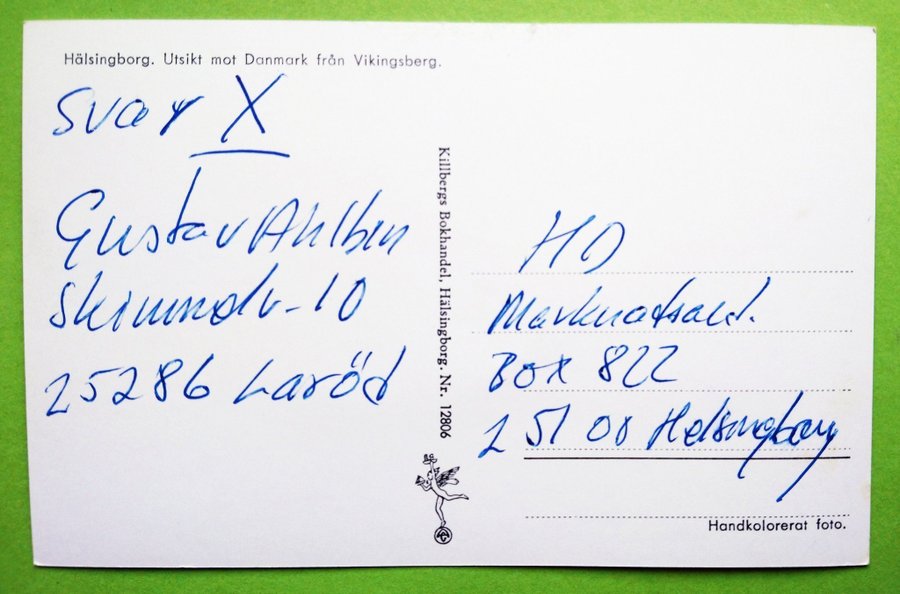 Hälsingborg. Utsikt mot Danmark från Vikingsberg.
svar X
Gustav Ahlbin
10
25286 Laröd
Killbergs Bokhandel, Hälsingborg. Nr. 12806
HD
Marknadsavd.
Box 822
251 08 Helsingborg
Handkolorerat foto.